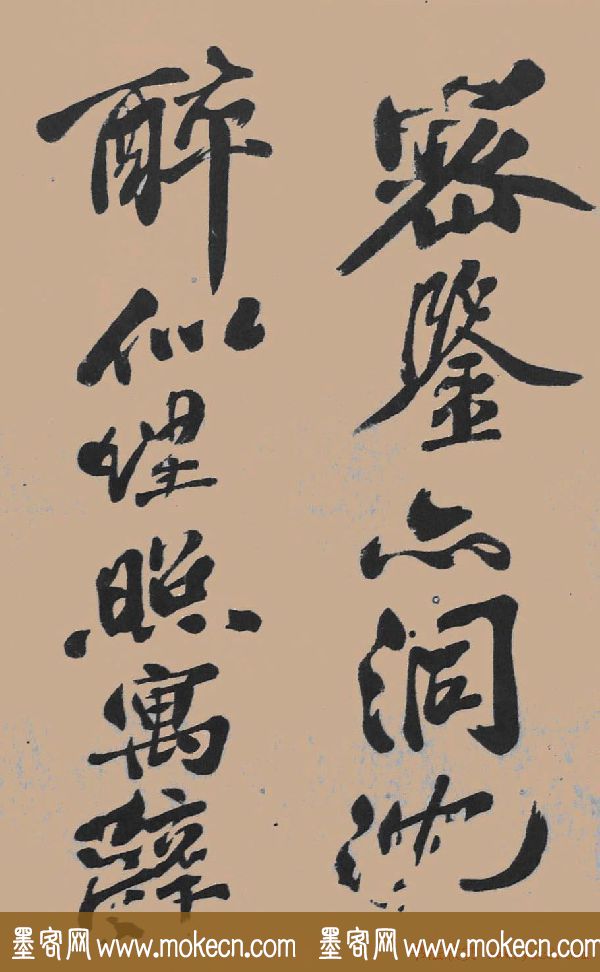 密鑒亦洞沈
醉似埋照寓辭
墨客网 www.mokecn.com 墨客网 www.mokecn.com